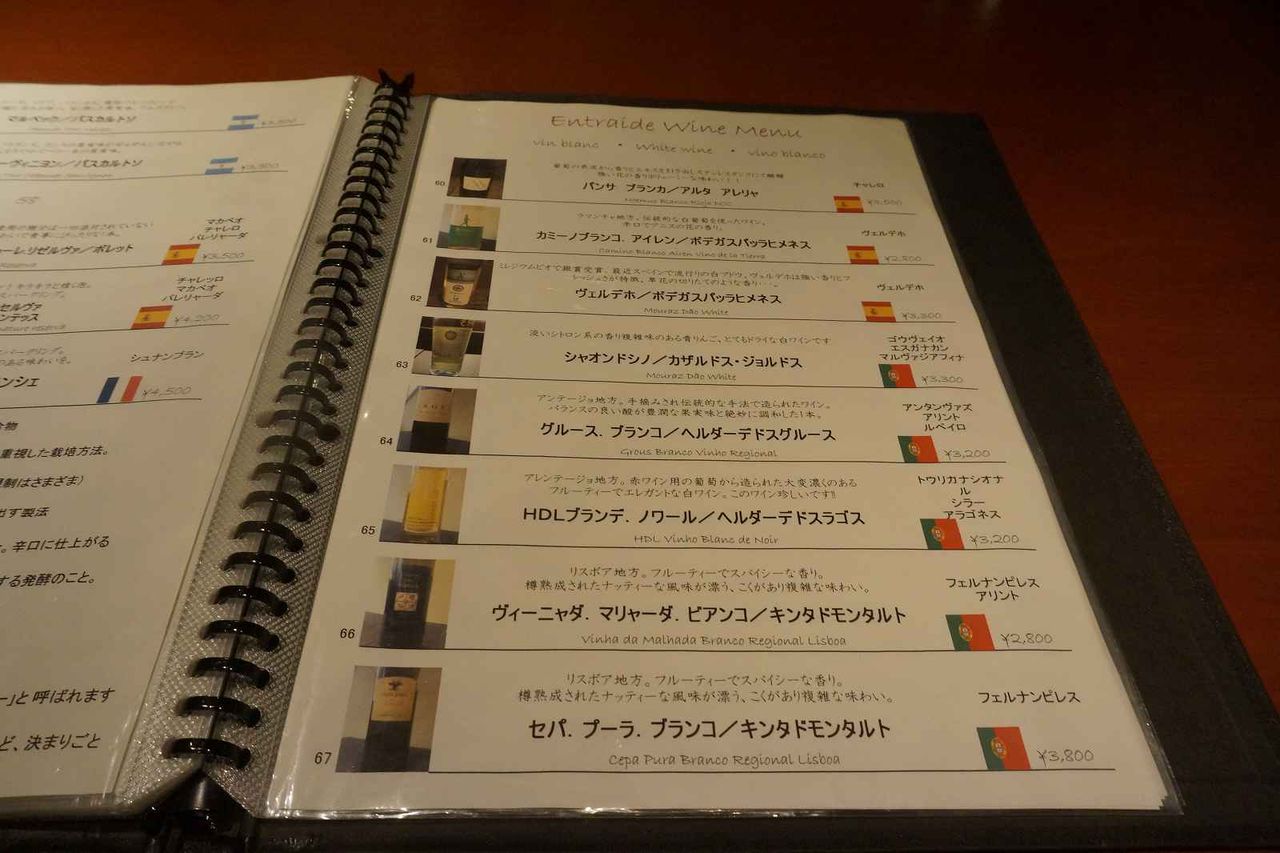 マルベック／パスカルトソ
ーヴィニヨン／パスカルトソ
マカベオ
チャレロ
パレリャーダ
ーレリゼルヴァ／ボレット
¥3,500
チャレッロ
マカベオ
パレリャーダ
セルヴァ
ンテッス
¥4,200
シュナンブラン
ンシェ
¥4,500
合物
重視した栽培方法。
規制はさまざま）
出す製法
。辛口に仕上がる
する発酵のこと。
ー」と 呼ばれます
ど、決まりごと
Entraide Wine Menu
vin blanc ・ White wine ・ vino blanco
60
パンサ ブランカ／アルタ アレリャ
チャレロ
ラマンチャ地方、伝統的な白葡萄を使ったワイン。
辛口でアニスの花の香り。
61
カミーノブランコ. アイレン／ボデガスパッラヒメネス
Camino Blanco Airen Vino de la Tierra
ヴェルデホ
¥2,800
62
ヴェルデホ／ボデガスパッラヒメネス
Mouraz Dão White
ヴェルデホ
¥3,300
淡いシトロン系の香り複雑味のある青りんご、とてもドライな白ワインです
63
シャオンドシノ／カザルドス・ジョルドス
Mouraz Dão White
ゴウヴェイオ
エスガナカン
マルヴァジアフィナ
¥3,300
アンテージョ地方。手摘みされ伝統的な手法で造られたワイン。
バランスの良い酸が豊潤な果実味と絶妙に調和した1本。
64
グルース. ブランコ／ヘルダーデドスグルース
Grous Branco Vinho Regional
アンタンヴァズ
アリント
ルペイロ
¥3,200
アレンテージョ地方。赤ワイン用の葡萄から造られた大変濃くのある
フルーティーでエレガントな白ワイン。このワイン珍しいです!!
65
HDLブランデ. ノワール／ヘルダーデドスラゴス
HDL Vinho Blanc de Noir
トウリカナシオナ
ル
シラー
アラゴネス
¥3,200
リスボア地方。フルーティーでスパイシーな香り。
樽熟成されたナッティーな風味が漂う、こくがあり複雑な味わい。
66
ヴィーニャダ. マリャーダ. ビアンコ／キンタドモンタルト
Vinha da Malhada Branco Regional Lisboa
フェルナンピレス
アリント
¥2,800
リスボア地方。フルーティーでスパイシーな香り。
樽熟成されたナッティーな風味が漂う、こくがあり複雑な味わい。
67
セパ. プーラ. ブランコ／キンタドモンタルト
Cepa Pura Branco Regional Lisboa
フェルナンピレス
¥3,800